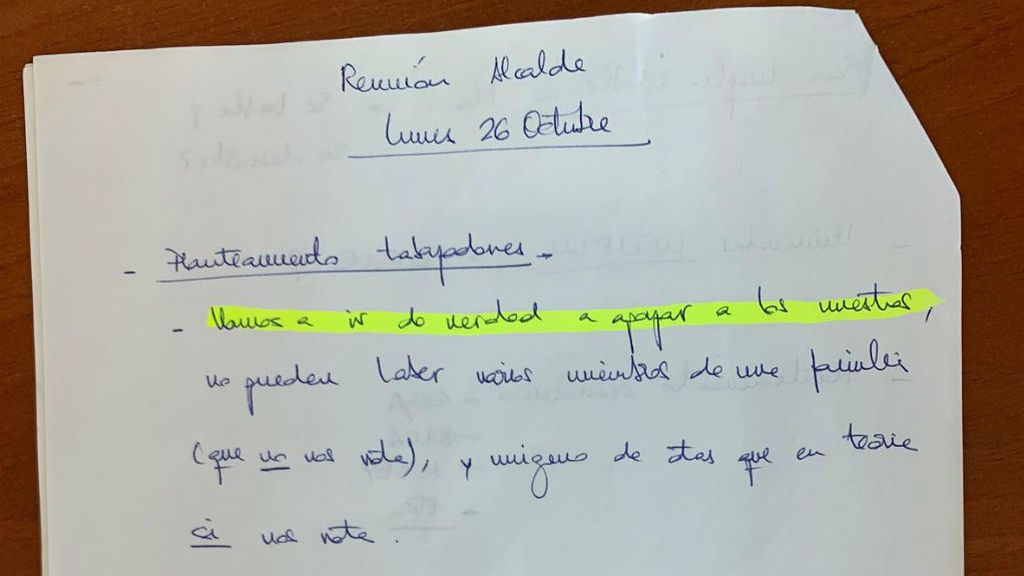 Reunión Alcalde
lunes 26 Octubre
- Planteamiento trabajadores -
- Vamos a ir de verdad a apoyar a los nuestros,
no pueden haber varios miembros de una familia
(que no nos vota), y ninguno de otras que en teoria
si nos vota.